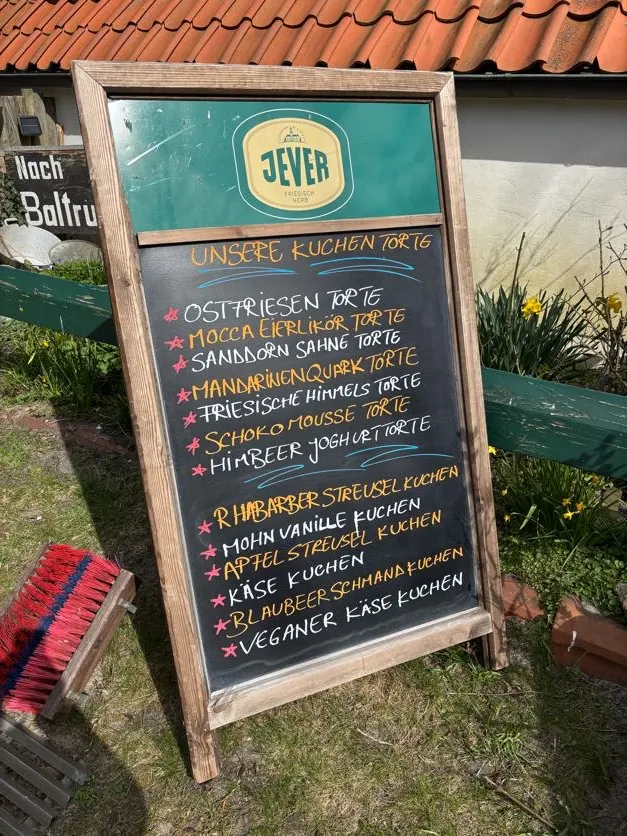 JEVER
FRIESISCH
HERB
Nach
Baltru
UNSERE KUCHEN TORTE
OSTFRIESEN TORTE
MOCCA EIERLIKÖR TORTE
SANDDORN SAHNE TORTE
MANDARINENQUARK TORTE
FRIESISCHE HIMMELS TORTE
SCHOKO MOUSSE TORTE
HIMBEER JOGHURTTORTE
RHABARBER STREUSEL KUCHEN
MOHN VANILLE KUCHEN
APFEL STREUSEL KUCHEN
KÄSE KUCHEN
BLAUBEER SCHMAND KUCHEN
VEGANER KÄSE KUCHEN